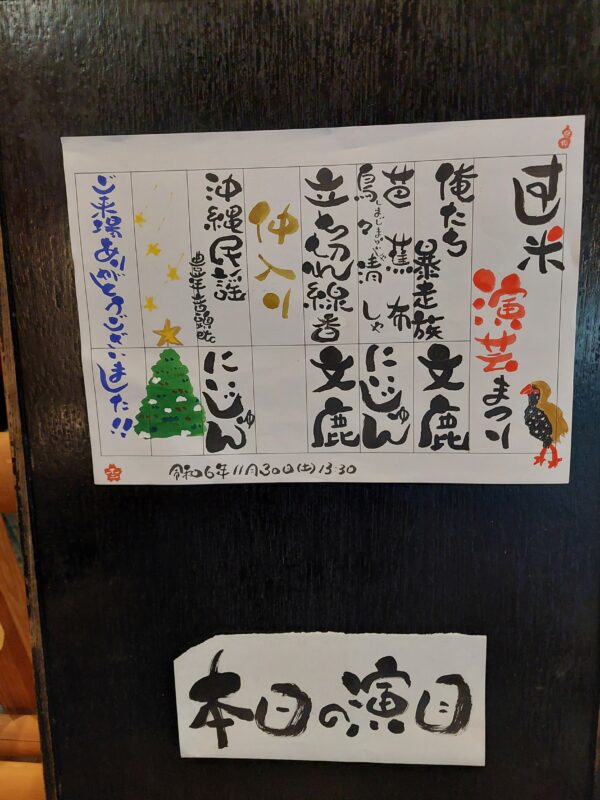 すし米 演芸まつり
俺たち暴走族 文鹿
芭蕉布
島々清しゃ にいじゅん
立ち切れ線香 文鹿
仲入り
沖縄民謡 豊年音頭etc にいじゅん
ご来場ありがとうございました!!
令和6年11月30日(土)13:30
本日の演目